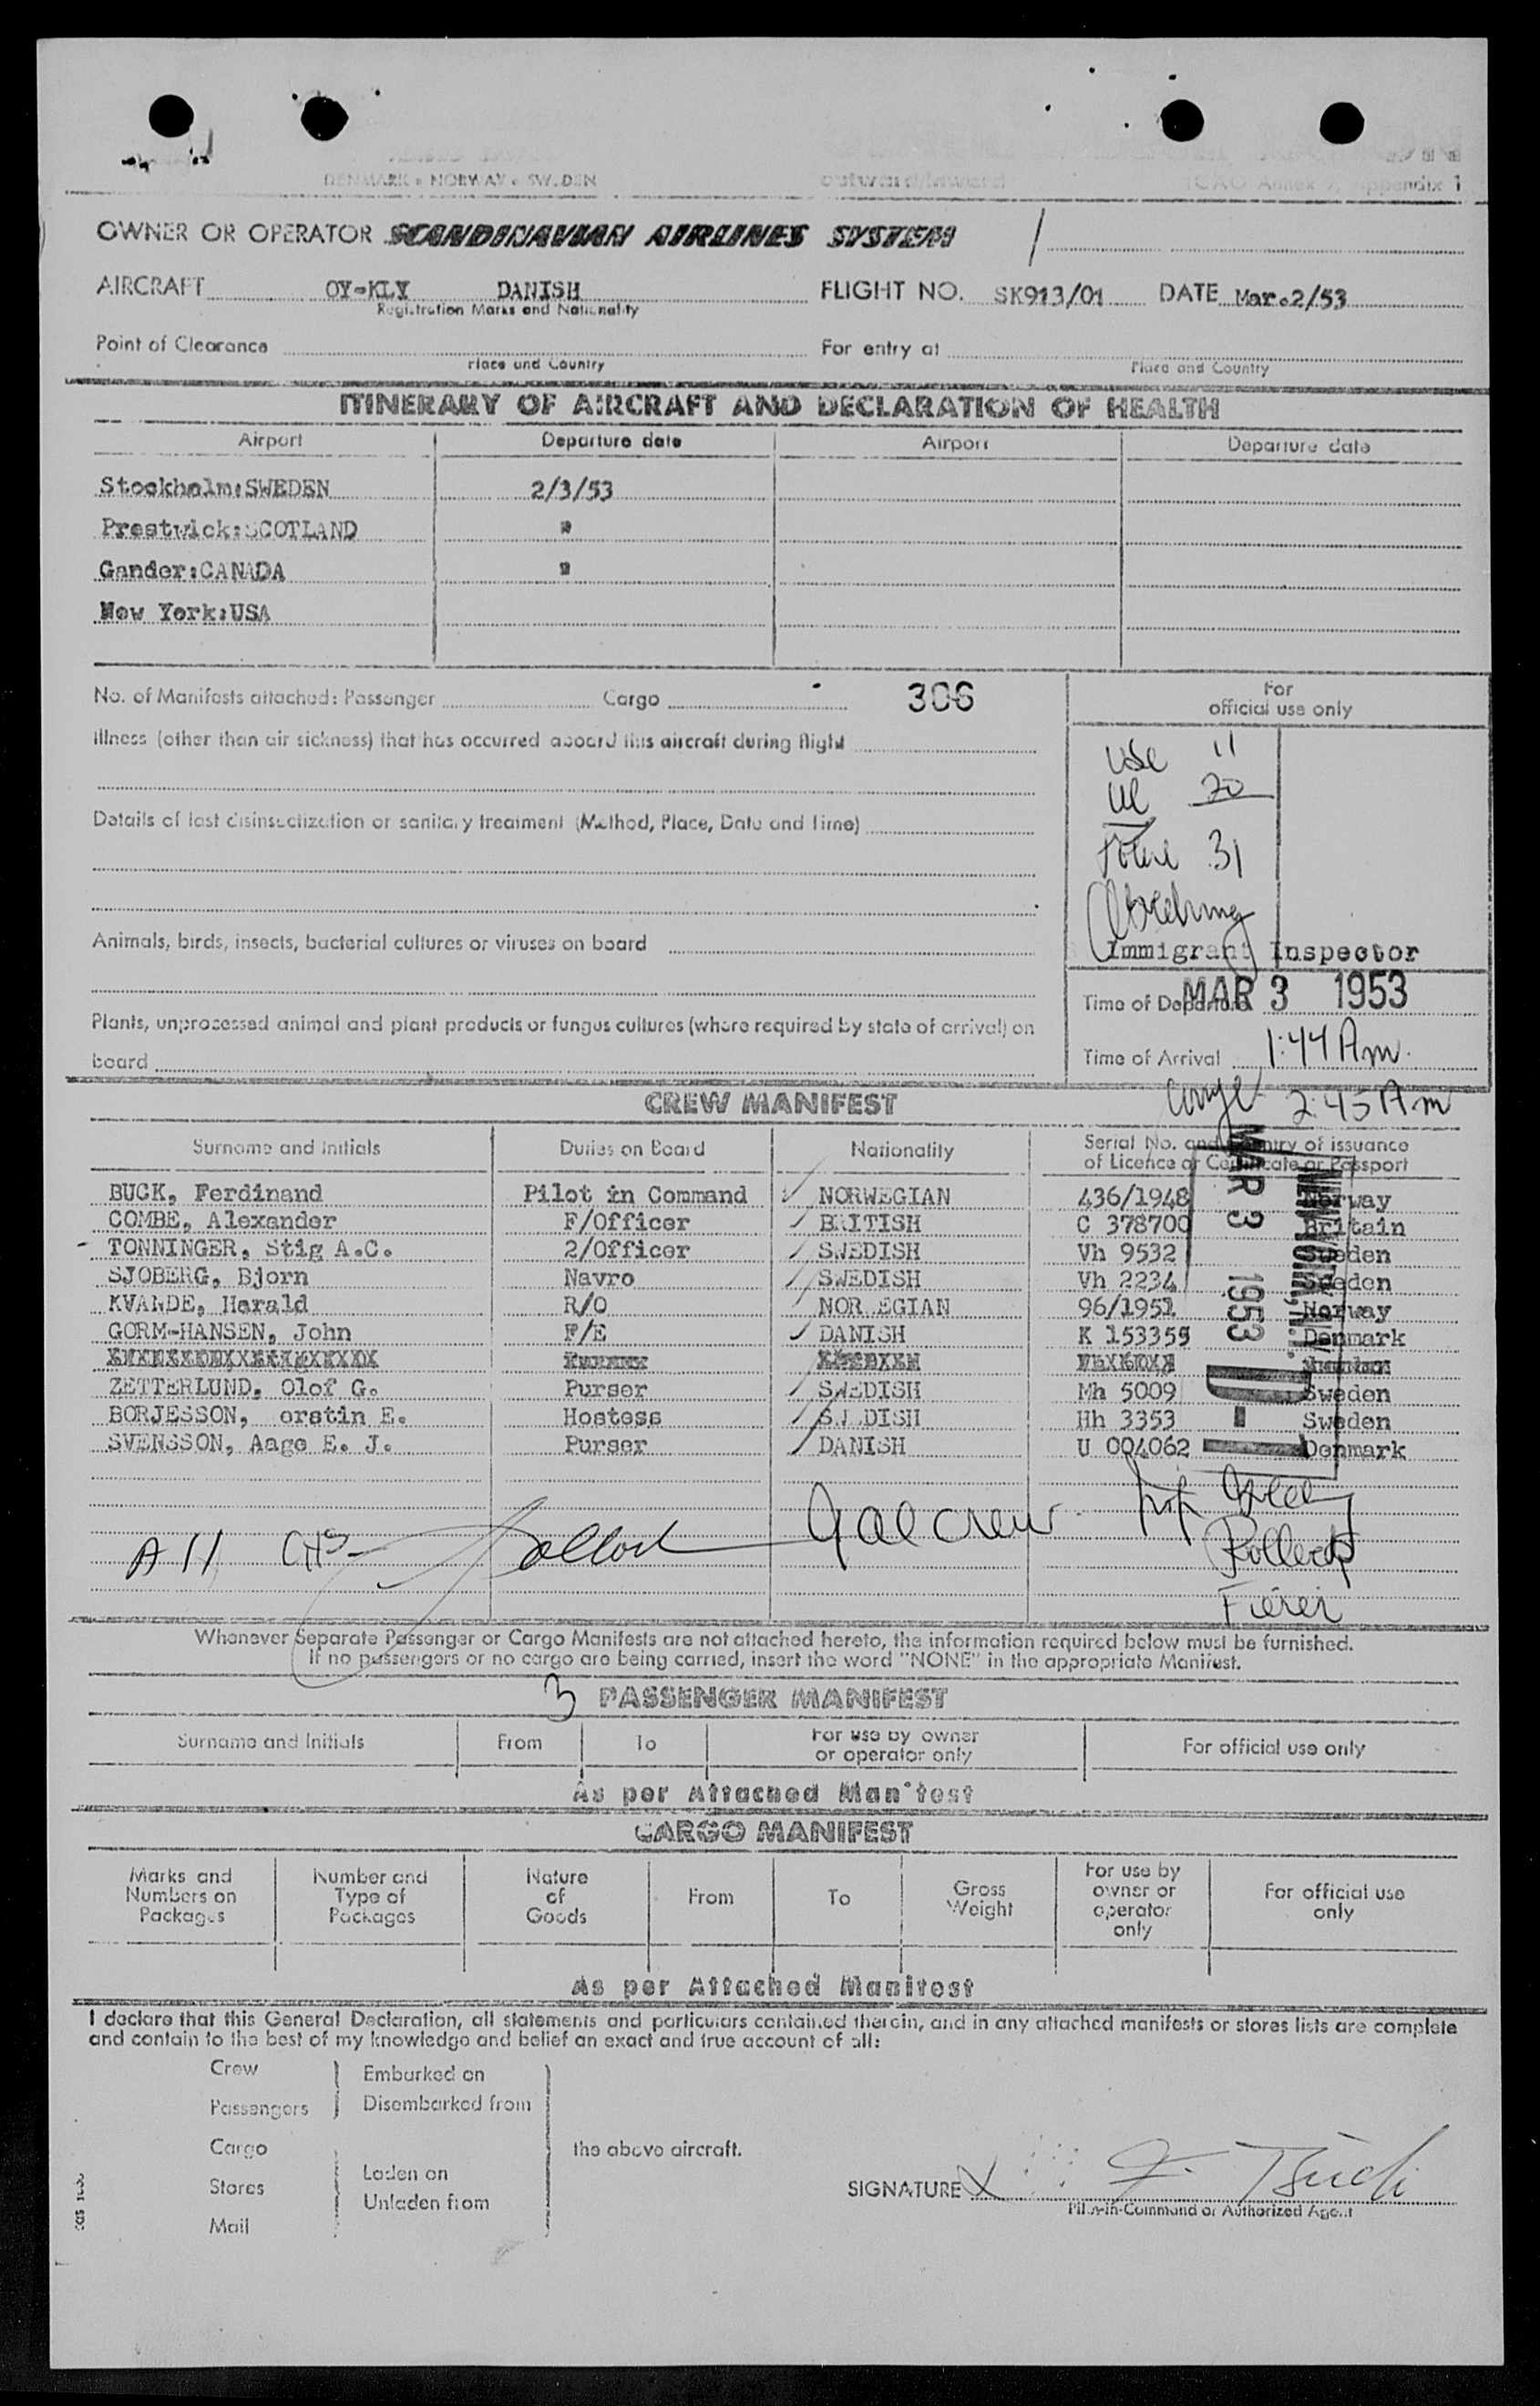 DENMARK • NORWAY • SWEDEN outward/inward ICAO Annex 9, Appendix 1
OWNER OR OPERATOR SCANDINAVIAN AIRLINES SYSTEM
AIRCRAFT OY-KLY DANISH FLIGHT NO. SK913/01 DATE Mar.2/53
Registration Marks and Nationality
Point of Clearance For entry at
Place and Country Place and Country
ITINERARY OF AIRCRAFT AND DECLARATION OF HEALTH
Airport Departure date Airport Departure date
Stockholm:SWEDEN 2/3/53
Prestwick:SCOTLAND "
Gander:CANADA "
New York:USA
No. of Manifests attached: Passenger Cargo 306
For
official use only
Illness (other than air sickness) that has occurred aboard this aircraft during flight
usc 11
uc 20
Details of last disinsectization or sanitary treatment (Method, Place, Date and Time)
Total 31
Animals, birds, insects, bacterial cultures or viruses on board
Immigrant Inspector
Time of Departure MAR 3 1953
Plants, unprocessed animal and plant products or fungus cultures (where required by state of arrival) on
board
Time of Arrival 1:44 Am.
2:45 Am
CREW MANIFEST
Surname and Initials Duties on Board Nationality Serial No. and Country of issuance
of Licence or Certificate or Passport
BUCK, Ferdinand Pilot in Command NORWEGIAN 436/1948 Norway
COMBE, Alexander F/Officer BRITISH C 378700 Britain
TONNINGER, Stig A.C. 2/Officer SWEDISH Vh 9532 Sweden
SJOBERG, Bjorn Navro SWEDISH Vh 2234 Sweden
KVANDE, Harald R/O NORWEGIAN 96/1951 Norway
GORM-HANSEN, John F/E DANISH K 153359 Denmark
ZETTERLUND, Olof G. Purser SWEDISH Mh 5009 Sweden
BORJESSON, orstin E. Hostess SWEDISH Hh 3353 Sweden
SVENSSON, Aage E. J. Purser DANISH U 004062 Denmark
NEW YORK, N.Y.
MAR 3 1953
D-1
A 11
9 al crew
Whenever Separate Passenger or Cargo Manifests are not attached hereto, the information required below must be furnished.
If no passengers or no cargo are being carried, insert the word "NONE" in the appropriate Manifest.
3 PASSENGER MANIFEST
Surname and Initials From To For use by owner
or operator only For official use only
As per Attached Manifest
CARGO MANIFEST
Marks and
Numbers on
Packages
Number and
Type of
Packages
Nature
of
Goods
From
To
Gross
Weight
For use by
owner or
operator
only
For official use
only
As per Attached Manifest
I declare that this General Declaration, all statements and particulars contained therein, and in any attached manifests or stores lists are complete
and contain to the best of my knowledge and belief an exact and true account of all:
Crew Embarked on
Passengers Disembarked from
Cargo the above aircraft.
Laden on
Stores
Unladen from
Mail
SIGNATURE X F. Buck
Pilot-in-Command or Authorized Agent